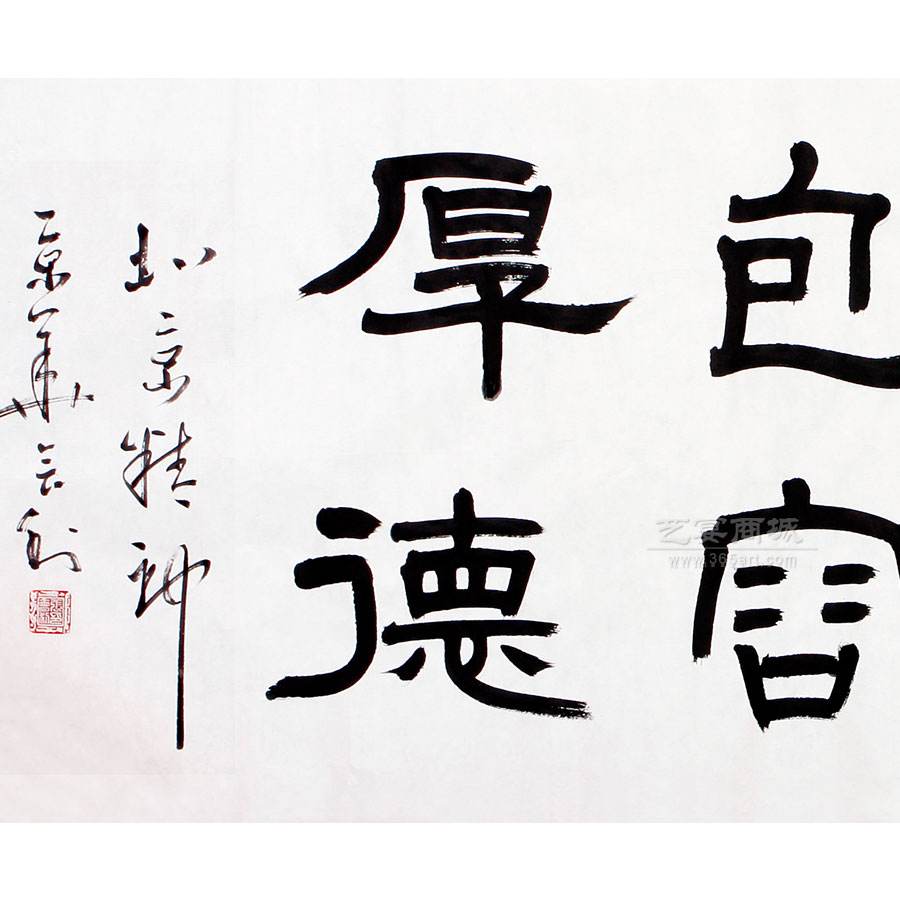 包容
厚德
北京精神
京華
艺宴商城
www.365art.com